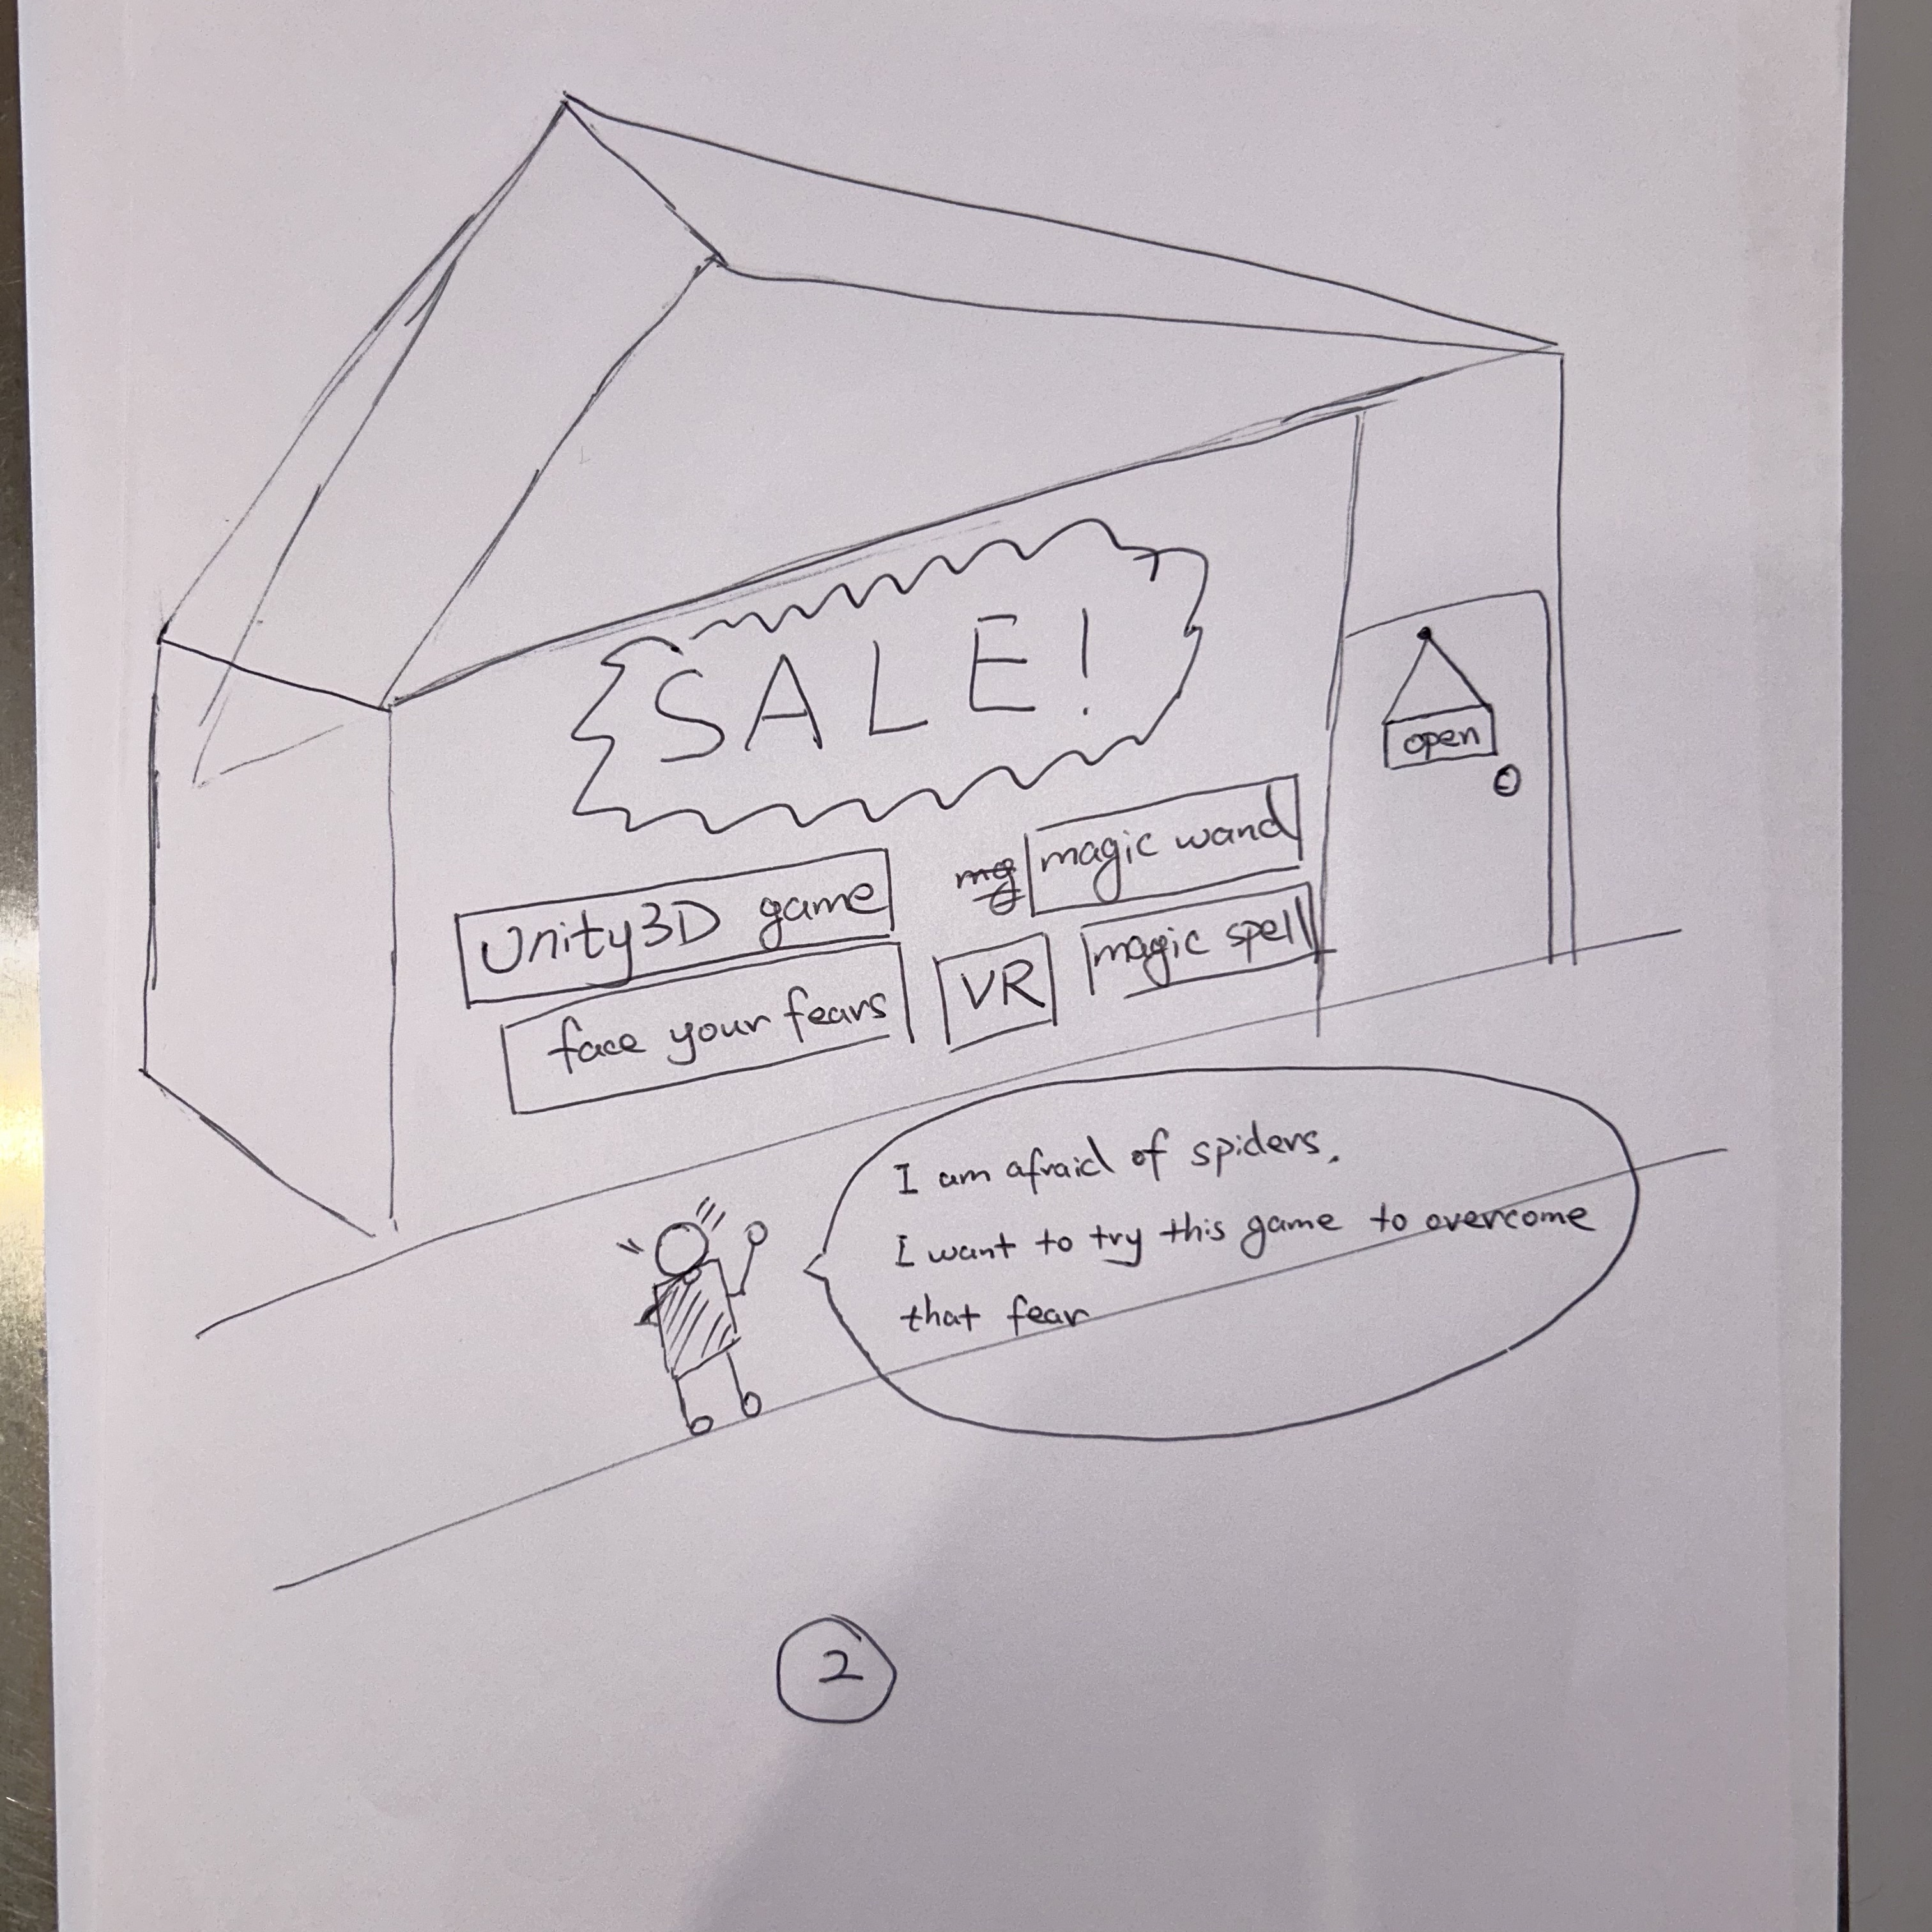 SALE!
open
mg magic wand
Unity3D game
magic spell
VR
face your fears
I am afraid of spiders.
I want to try this game to overcome
that fear
2